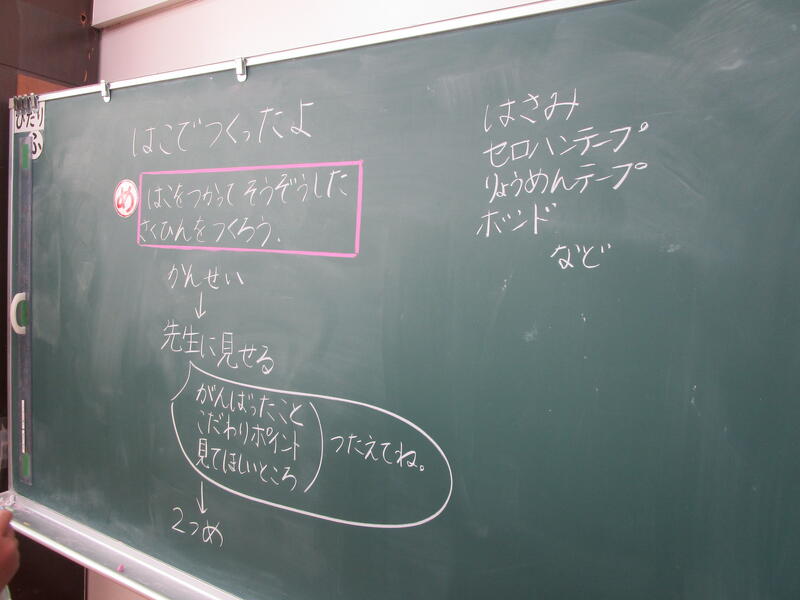 ひだり
ふ
はこでつくったよ
め
はこをつかって そうぞうした
さくひんをつくろう.
かんせい
↓
先生に見せる
がんばったこと
こだわりポイント
見てほしいところ
つたえてね。
↓
2つめ
はさみ
セロハンテープ
りょうめんテープ
ボンド
など